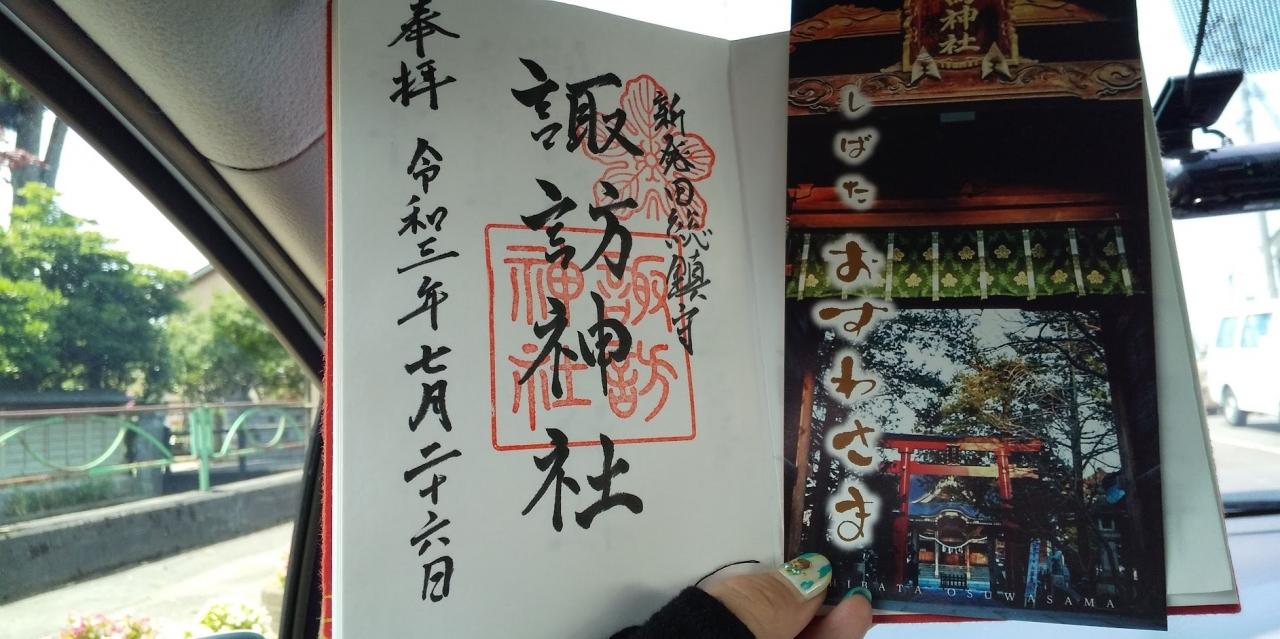 新発田総鎮守
諏訪神社
諏訪
神社
奉拝
令和三年七月二十六日
神社
しばた
おすわさま
SHIBATA OSUWASAMA